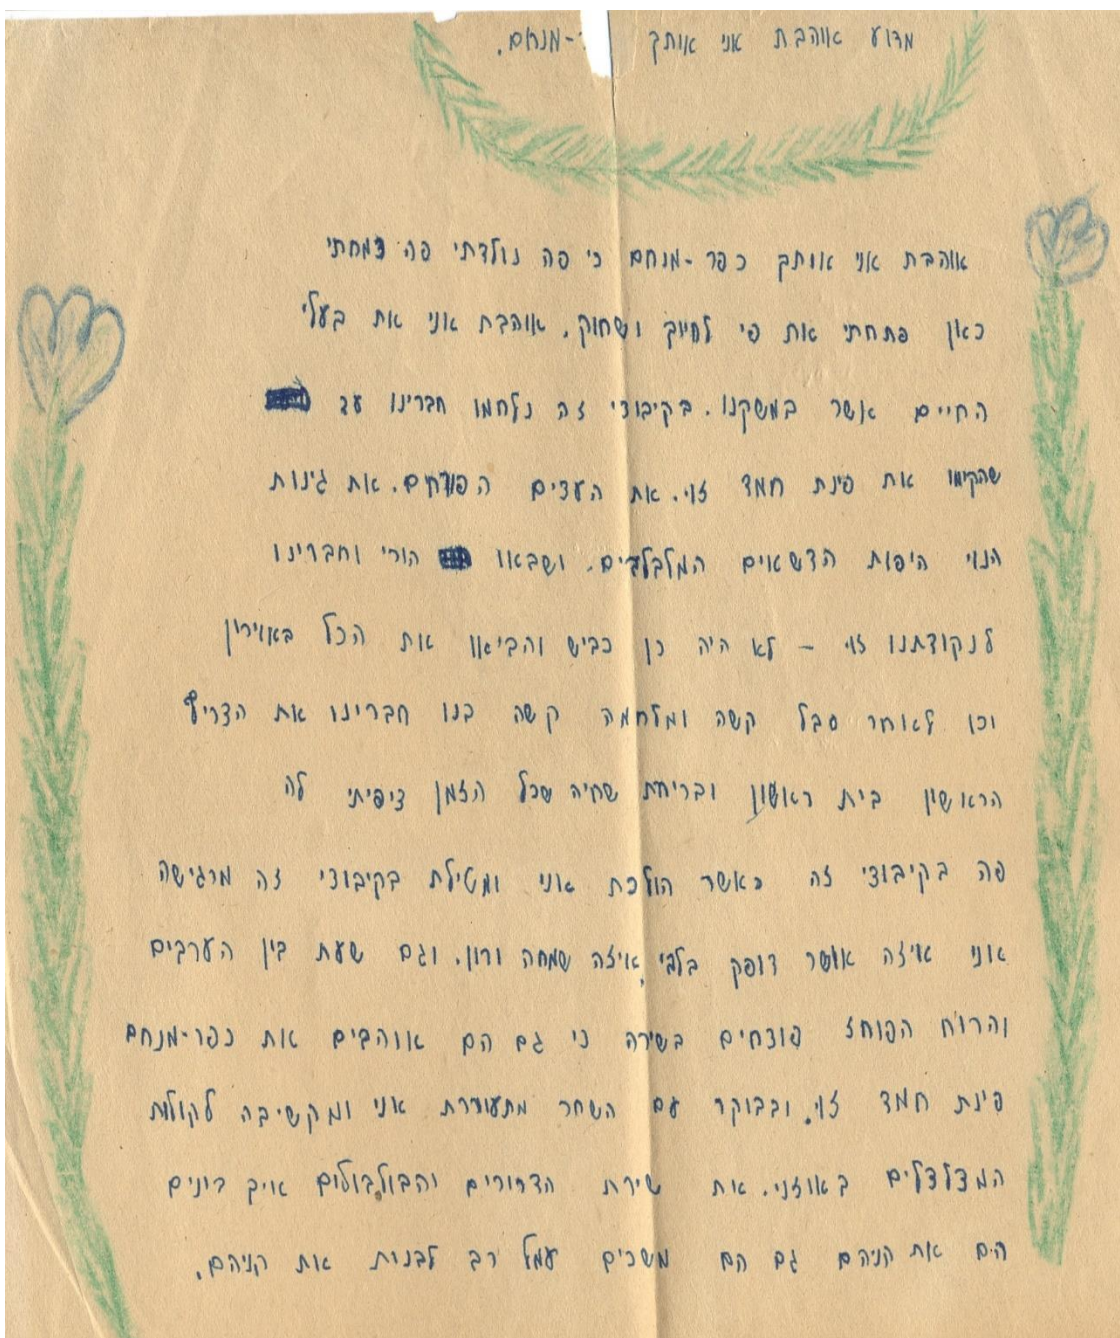 מדוע אוהבת אני אותך -מנחם.
אוהבת אני אותך כפר-מנחם כי פה נולדתי פה צמחתי
כאן פתחתי את פי לחיוך ושחוק. אוהבת אני את בעלי
החיים אשר במשקנו. בקיבוצי זה נלחמו חברינו עד
שהקימו את פינת חמד זו. את העצים הפורחים. את גינות
הנוי היפות הדשאים המלבלבים. ושבאו הורי וחברינו
לנקודתנו זו - לא היה כן כביש והביאו את הכל באוירון
וכן לאחר סבל קשה ומלחמה קשה בנו חברינו את הצריף
הראשון בית ראשון ובריחת שחיה שכל הזמן ציפיתי לה
פה בקיבוצי זה כאשר הולכת אני ומטילת בקיבוצי זה מרגישה
אני איזה אושר דופק בלבי איזה שמחה ורון. וגם שעת בין הערבים
והרוח הפוחז פוצחים בשירה כי גם הם אוהבים את כפר-מנחם
פינת חמד זו. ובבוקר עם השחר מתעוררת אני ומקשיבה לקולות
המצלצלים באוזני. את שירת הדרורים והבולבולים איך בונים
הם את קניהם גם הם משכים עמל רב לבנות את קניהם.